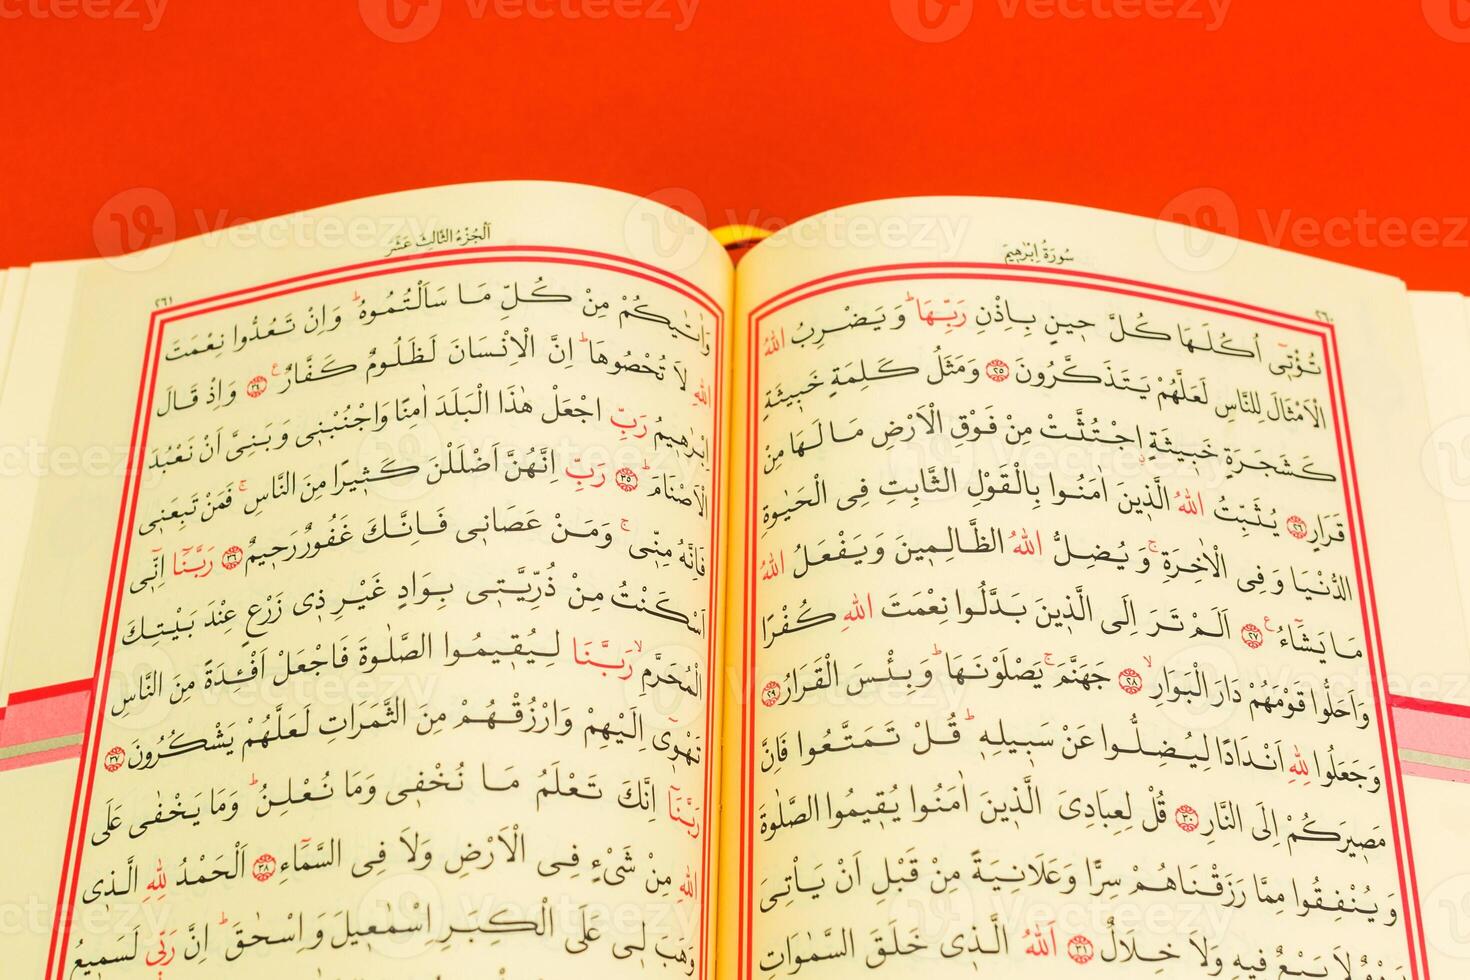 سُورَةُ اِبْرٰهٖيمَ
٢٦٠
تُؤْتٖٓي اُكُلَهَا كُلَّ حٖينٍ بِاِذْنِ رَبِّهَاۜ وَيَضْرِبُ اللّٰهُ
الْاَمْثَالَ لِلنَّاسِ لَعَلَّهُمْ يَتَذَكَّرُونَ ﴿٢٥﴾ وَمَثَلُ كَلِمَةٍ خَبٖيثَةٍ
كَشَجَرَةٍ خَبٖيثَةٍۨ اجْتُثَّتْ مِنْ فَوْقِ الْاَرْضِ مَا لَهَا مِنْ
قَرَارٍ ﴿٢٦﴾ يُثَبِّتُ اللّٰهُ الَّذٖينَ اٰمَنُوا بِالْقَوْلِ الثَّابِتِ فِي الْحَيٰوةِ
الدُّنْيَا وَفِي الْاٰخِرَةِۚ وَيُضِلُّ اللّٰهُ الظَّالِمٖينَ وَيَفْعَلُ اللّٰهُ
مَا يَشَٓاءُ۟ ﴿٢٧﴾ اَلَمْ تَرَ اِلَى الَّذٖينَ بَدَّلُوا نِعْمَتَ اللّٰهِ كُفْرًا
وَاَحَلُّوا قَوْمَهُمْ دَارَ الْبَوَارِۙ ﴿٢٨﴾ جَهَنَّمَۚ يَصْلَوْنَهَاۜ وَبِئْسَ الْقَرَارُ ﴿٢٩﴾
وَجَعَلُوا لِلّٰهِ اَنْدَادًا لِيُضِلُّوا عَنْ سَبٖيلِهٖۜ قُلْ تَمَتَّعُوا فَاِنَّ
مَصٖيرَكُمْ اِلَى النَّارِ ﴿٣٠﴾ قُلْ لِعِبَادِيَ الَّذٖينَ اٰمَنُوا يُقٖيمُوا الصَّلٰوةَ
وَيُنْفِقُوا مِمَّا رَزَقْنَاهُمْ سِرًّا وَعَلَانِيَةً مِنْ قَبْلِ اَنْ يَأْتِيَ
يَوْمٌ لَا بَيْعٌ فٖيهِ وَلَا خِلَالٌ ﴿٣١﴾ اَللّٰهُ الَّذٖي خَلَقَ السَّمٰوَاتِ
اَلْجُزْءُ الثَّالِثَ عَشَرَ
٢٦١
وَاٰتٰيكُمْ مِنْ كُلِّ مَا سَاَلْتُمُوهُۜ وَاِنْ تَعُدُّوا نِعْمَتَ
اللّٰهِ لَا تُحْصُوهَاۜ اِنَّ الْاِنْسَانَ لَظَلُومٌ كَفَّارٌ۟ ﴿٣٤﴾ وَاِذْ قَالَ
اِبْرٰهٖيمُ رَبِّ اجْعَلْ هٰذَا الْبَلَدَ اٰمِنًا وَاجْنُبْنٖي وَبَنِيَّ اَنْ نَعْبُدَ
الْاَصْنَامَۜ ﴿٣٥﴾ رَبِّ اِنَّهُنَّ اَضْلَلْنَ كَثٖيرًا مِنَ النَّاسِۚ فَمَنْ تَبِعَنٖي
فَاِنَّهُ مِنّٖيۚ وَمَنْ عَصَانٖي فَاِنَّكَ غَفُورٌ رَحٖيمٌ ﴿٣٦﴾ رَبَّنَٓا اِنّٖٓي
اَسْكَنْتُ مِنْ ذُرِّيَّتٖي بِوَادٍ غَيْرِ ذٖي زَرْعٍ عِنْدَ بَيْتِكَ
الْمُحَرَّمِۙ رَبَّنَا لِيُقٖيمُوا الصَّلٰوةَ فَاجْعَلْ اَفْـِٔدَةً مِنَ النَّاسِ
تَهْوٖٓي اِلَيْهِمْ وَارْزُقْهُمْ مِنَ الثَّمَرَاتِ لَعَلَّهُمْ يَشْكُرُونَ ﴿٣٧﴾
رَبَّنَٓا اِنَّكَ تَعْلَمُ مَا نُخْفٖي وَمَا نُعْلِنُۜ وَمَا يَخْفٰى عَلَى
اللّٰهِ مِنْ شَيْءٍ فِي الْاَرْضِ وَلَا فِي السَّمَٓاءِ ﴿٣٨﴾ اَلْحَمْدُ لِلّٰهِ الَّذٖي
وَهَبَ لٖي عَلَى الْكِبَرِ اِسْمٰعٖيلَ وَاِسْحٰقَۜ اِنَّ رَبّٖي لَسَمٖيعُ
Vecteezy